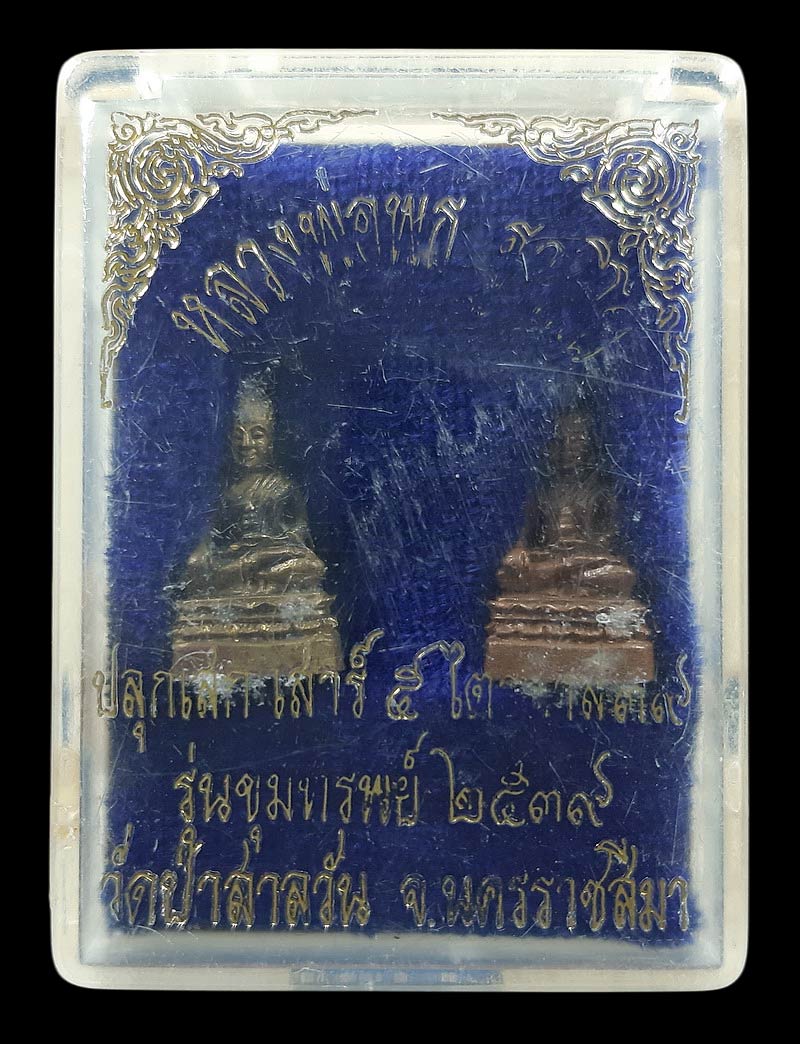 หลวงพ่อพุธ
ปลุกเสก เสาร์ ๕ ไต
รุ่นขุมทรัพย์ ๒๕๓๙
วัดป่าสาลวัน จ.นครราชสีมา